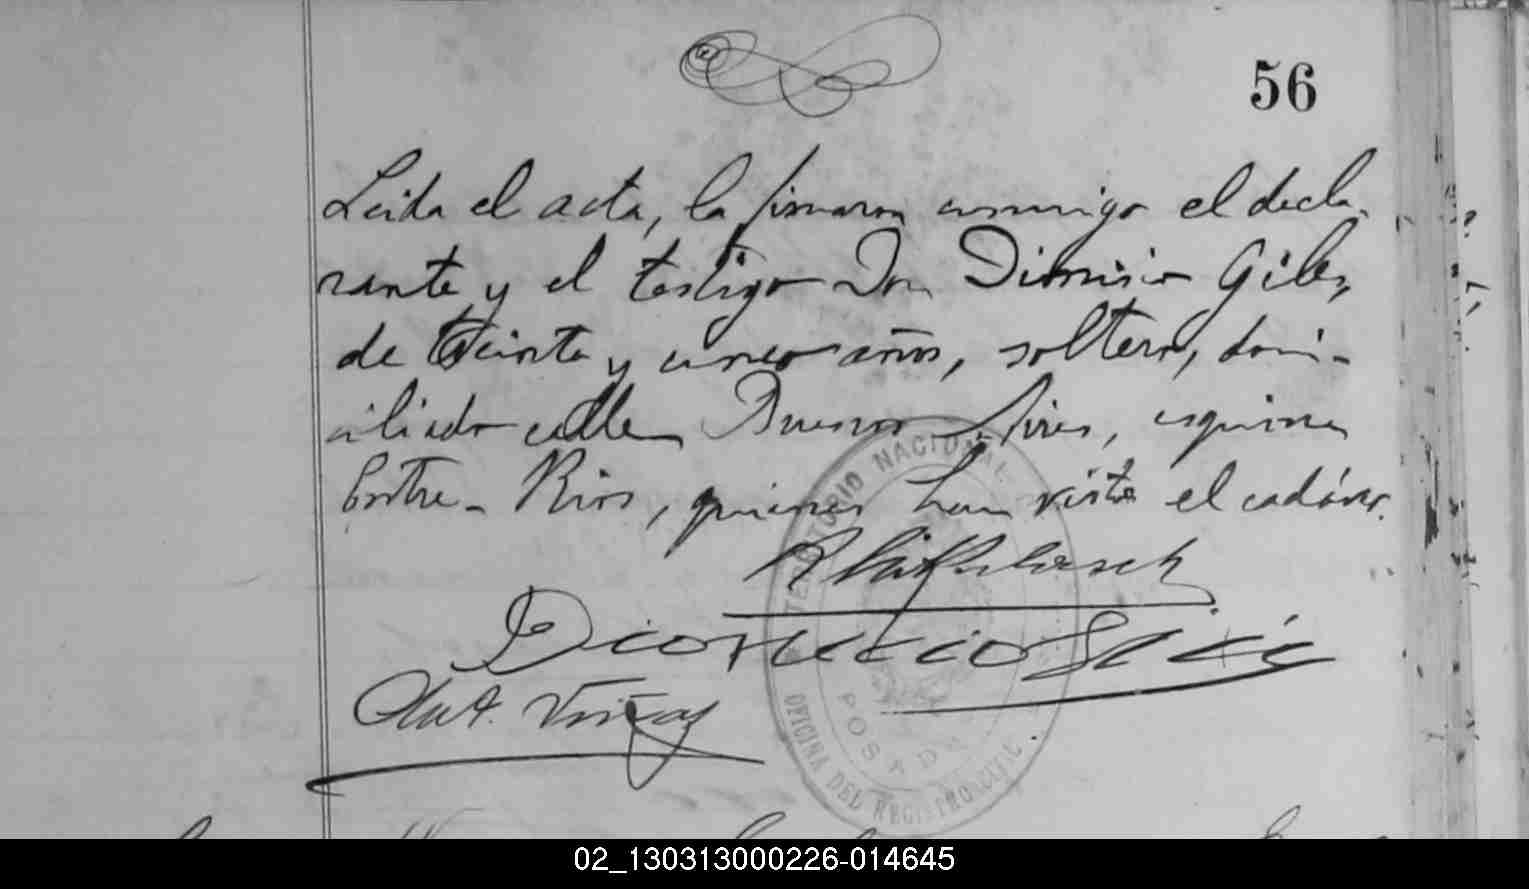 56
Leida el acta, la firmaron conmigo el decla-
rante y el testigo Don Dionisio Giles,
de treinta y cinco años, soltero, domi-
ciliado calle Buenos Aires, esquina
Entre-Rios, quienes han visto el cadáver.
Dionicio
TERRITORIO NACIONAL
POSADAS
OFICINA DEL REGISTRO CIVIL
02_130313000226-014645